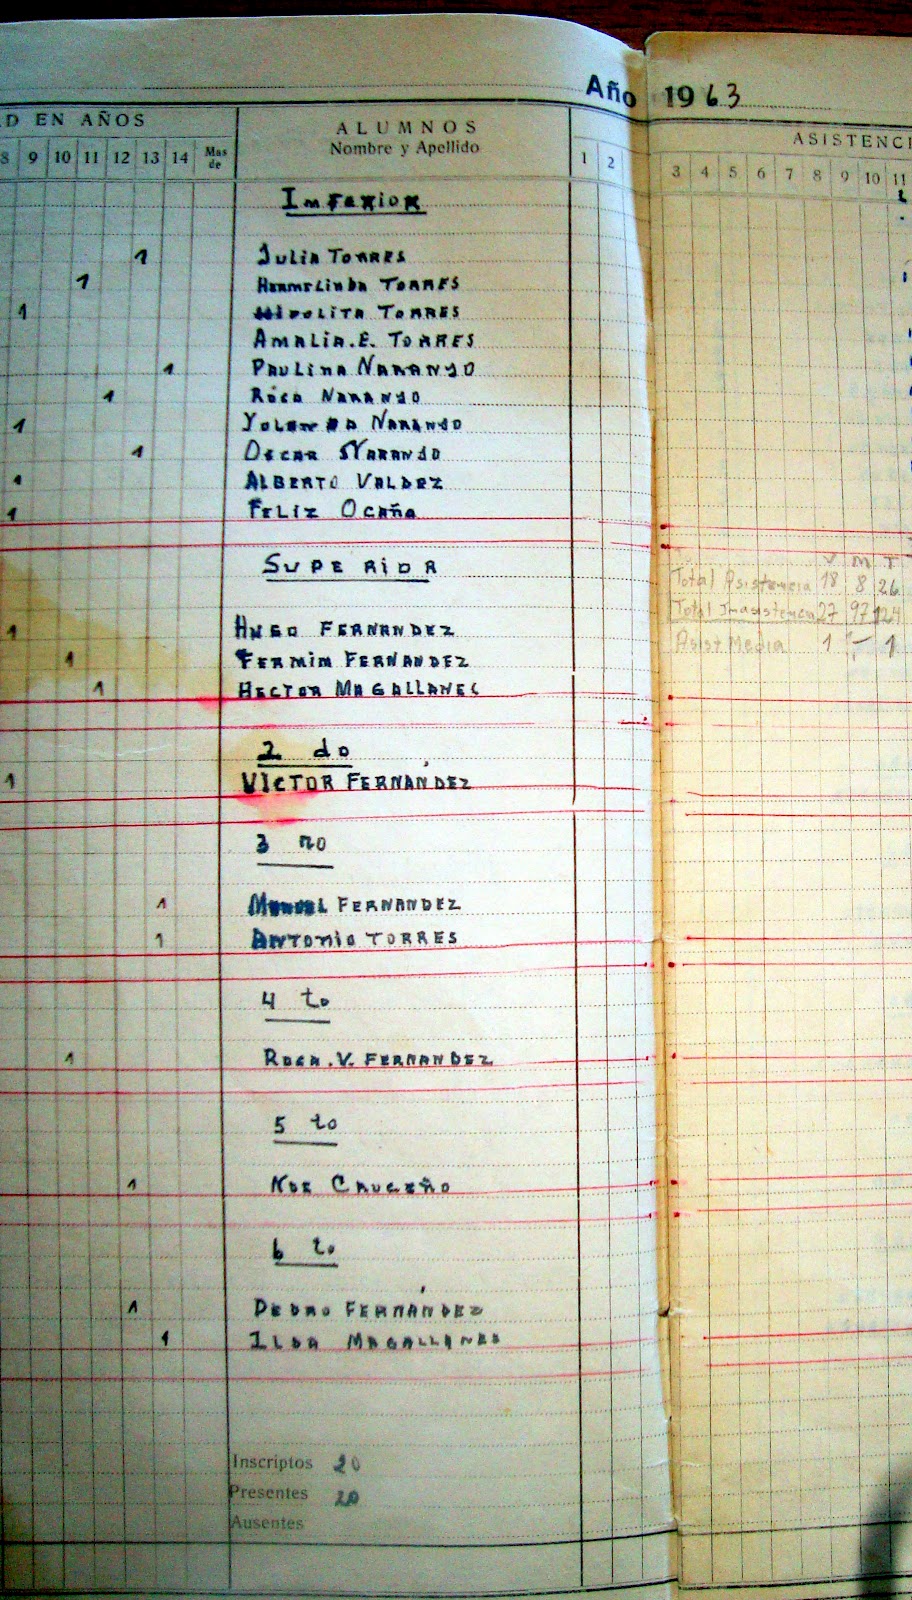 Año 1963
D EN AÑOS
8 9 10 11 12 13 14 Mas de
ALUMNOS
Nombre y Apellido
1 2
ASISTENCI
3 4 5 6 7 8 9 10 11
Inferior
1 Julia Torres
1 Hermelinda Torres
1 Hipolita Torres
Amalia.E. Torres
1 Paulina Naranjo
1 Rosa Naranjo
1 Yolanda Naranjo
1 Oscar Naranjo
1 Alberto Valdez
1 Feliz Ocaña
Superior
V M T
Total Asistencia 18 8 26
Total Inasistencia 27 97 124
Asist Media 1 - 1
1 Hugo Fernandez
1 Fermin Fernandez
1 Hector Magallanes
2 do
1 Victor Fernández
3 ro
1 Manuel Fernandez
1 Antonio Torres
4 to
1 Rosa.V. Fernandez
5 to
1 Noe Cruceño
6 to
1 Pedro Fernández
1 Ilda Magallanes
Inscriptos 20
Presentes 20
Ausentes